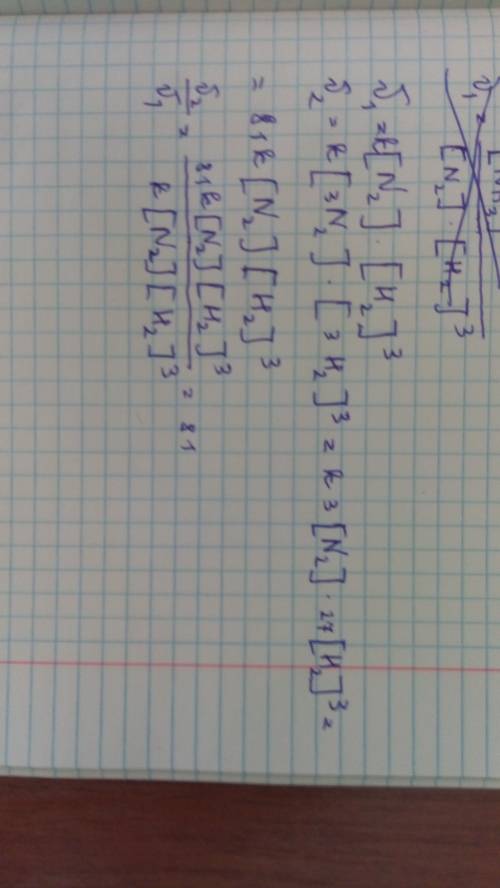 v₁ = [NH₃] / [N₂] · [H₂]³
v₁ = k[N₂] · [H₂]³
v₂ = k[3N₂] · [3H₂]³ = k 3 [N₂] · 27[H₂]³ =
= 81k[N₂][H₂]³
v₂ / v₁ = 81k[N₂][H₂]³ / k[N₂][H₂]³ = 81